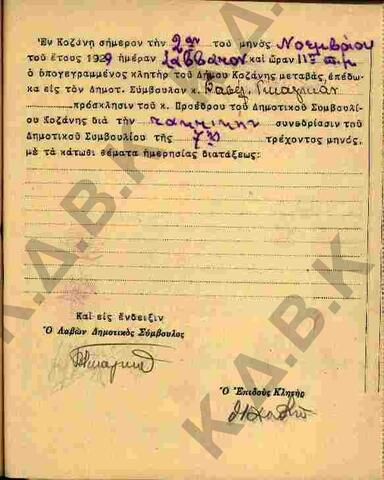 Ἐν Κοζάνῃ σήμερον τὴν 2αν τοῦ μηνός Νοεμβρίου
τοῦ ἔτους 1929 ἡμέραν Σάββατον καὶ ὥραν 11ην π.μ
ὁ ὑπογεγραμμένος κλητὴρ τοῦ Δήμου Κοζάνης μεταβάς, ἐπέδω-
κα εἰς τὸν Δημοτ. Σύμβουλον κ.
πρόσκλησιν τοῦ κ. Προέδρου τοῦ Δημοτικοῦ Συμβουλί
ου Κοζάνης διὰ τὴν τακτικὴν συνεδρίασιν τοῦ
Δημοτικοῦ Συμβουλίου τῆς 7ης τρέχοντος μηνός,
μὲ τὰ κάτωθι θέματα ἡμερησίας διατάξεως:
Καὶ εἰς ἔνδειξιν
Ὁ Λαβὼν Δημοτικὸς Σύμβουλος
Ὁ Ἐπιδοὺς Κλητὴρ
Κ.Δ.Β.Κ